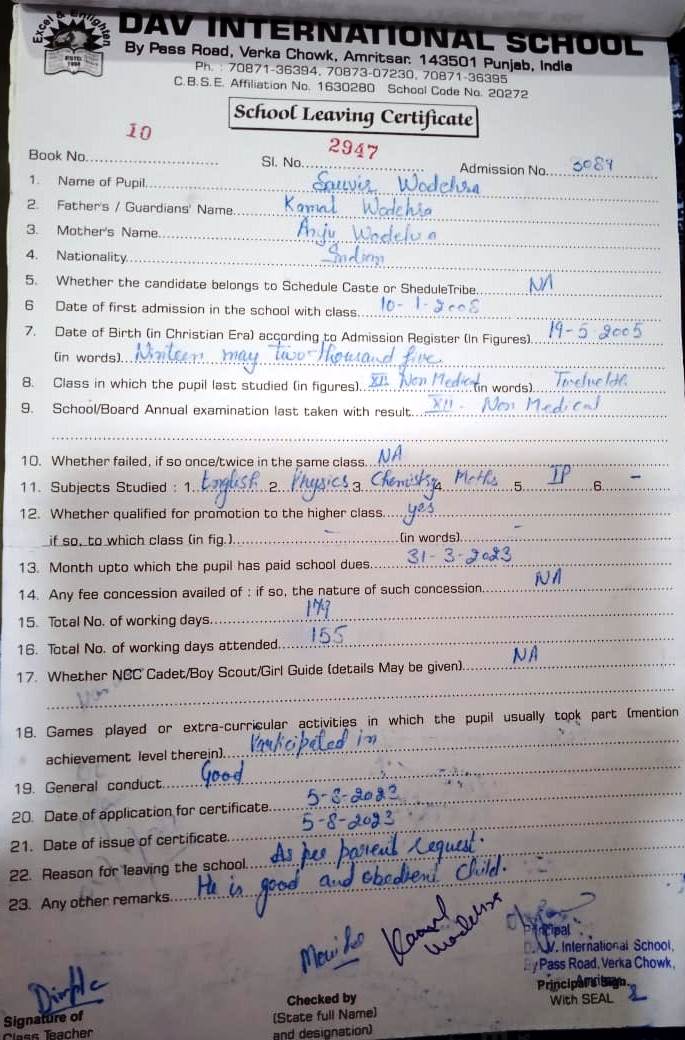 Excel & Enlighten
DAV INTERNATIONAL SCHOOL
By Pass Road, Verka Chowk, Amritsar. 143501 Punjab, India
Ph. : 70871-36394, 70873-07230, 70871-36395
C.B.S.E. Affiliation No. 1630280 School Code No. 20272
School Leaving Certificate
Book No. 10 Sl. No. 2947 Admission No. 3089
1. Name of Pupil Sauvir Wadehra
2. Father's / Guardians' Name Kamal Wadehra
3. Mother's Name Anju Wadehra
4. Nationality Indian
5. Whether the candidate belongs to Schedule Caste or SheduleTribe NA
6 Date of first admission in the school with class 10-1-2008
7. Date of Birth (in Christian Era) according to Admission Register (In Figures) 19-5-2005
(in words) Ninteen may two thousand five
8. Class in which the pupil last studied (in figures) XII Non Medical (in words) Twelveth
9. School/Board Annual examination last taken with result XII - Non Medical
10. Whether failed, if so once/twice in the same class NA
11. Subjects Studied : 1. English 2. Physics 3. Chemistry 4. Maths 5. IP 6. -
12. Whether qualified for promotion to the higher class yes
if so, to which class (in fig.) - (in words) -
13. Month upto which the pupil has paid school dues 31-3-2023
14. Any fee concession availed of : if so, the nature of such concession NA
15. Total No. of working days
16. Total No. of working days attended 155
17. Whether NCC Cadet/Boy Scout/Girl Guide (details May be given) NA
18. Games played or extra-curricular activities in which the pupil usually took part (mention
achievement level therein) Participated in
19. General conduct Good
20. Date of application for certificate 5-8-2023
21. Date of issue of certificate 5-8-2023
22. Reason for leaving the school As per parent request.
23. Any other remarks He is good and obedient child.
Kamal Wadehra
Principal
D.A.V. International School,
By Pass Road, Verka Chowk,
Amritsar
Dimple
Signature of
Class Teacher
Checked by
(State full Name)
and designation)
Principal's Sign.
With SEAL